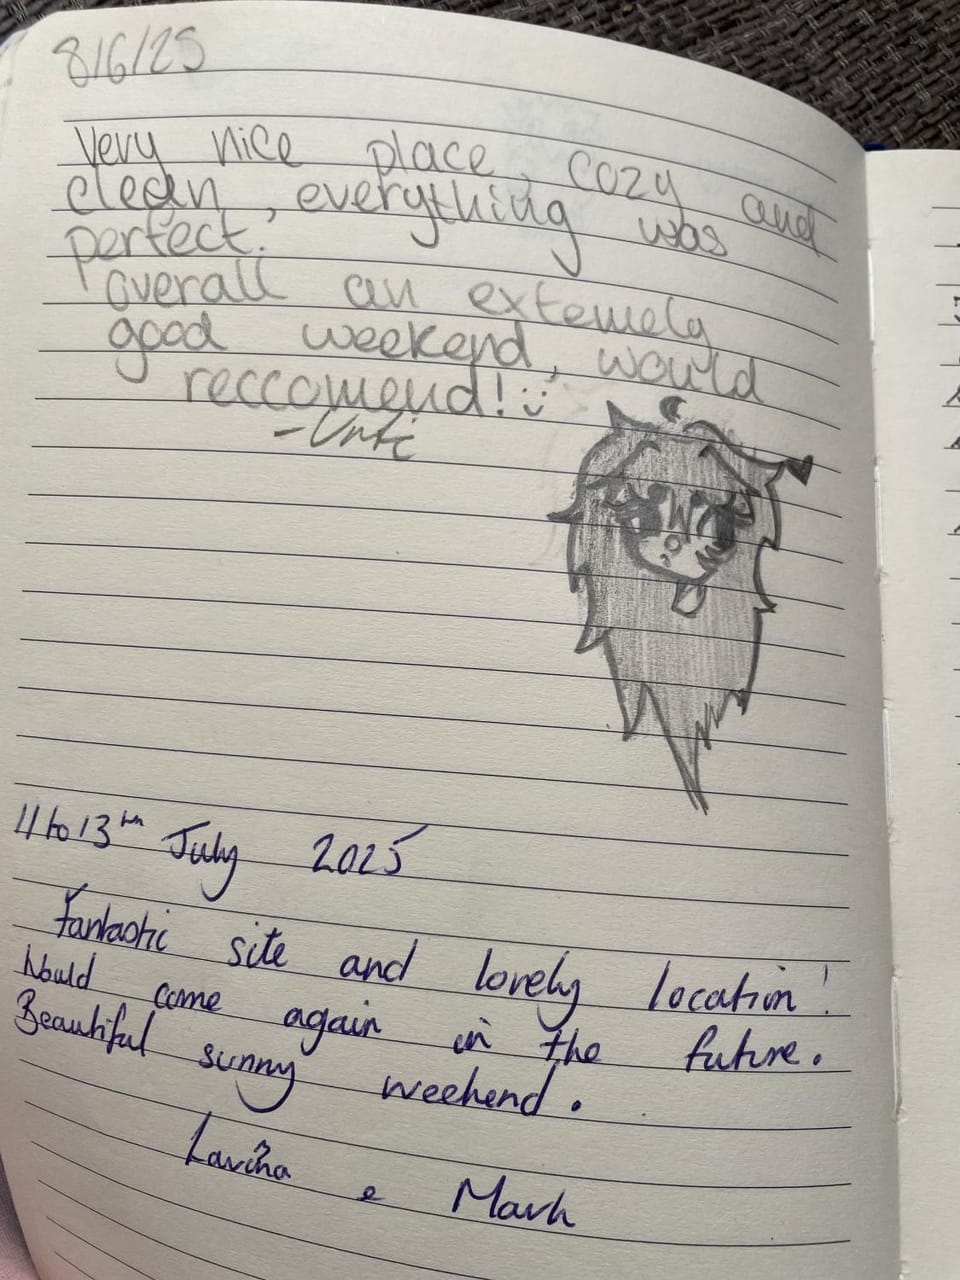 8/6/25
Very nice place, cozy and
clean, everything was
perfect.
overall an extemely
good weekend, would
reccomend! :)
11 to 13th July 2025
Fantastic site and lovely location!
Would come again in the future.
Beautiful sunny weekend.
Lavina & Mark